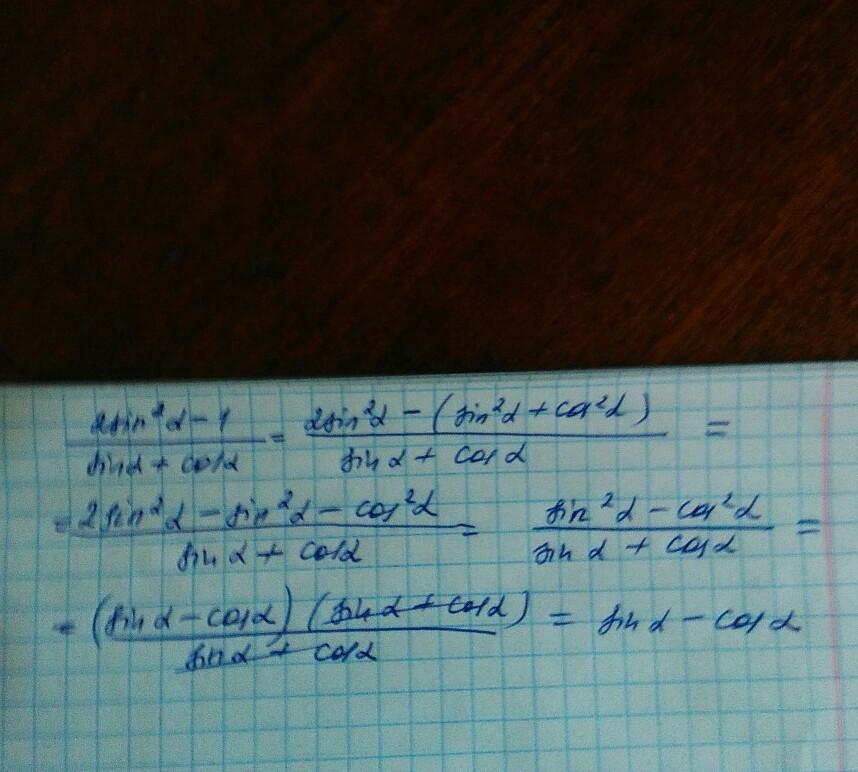 (2sin²α − 1)/(sinα + cosα) = (2sin²α − (sin²α + cos²α))/(sinα + cosα) =
= (2sin²α − sin²α − cos²α)/(sinα + cosα) = (sin²α − cos²α)/(sinα + cosα) =
= ((sinα − cosα)(sinα + cosα))/(sinα + cosα) = sinα − cosα